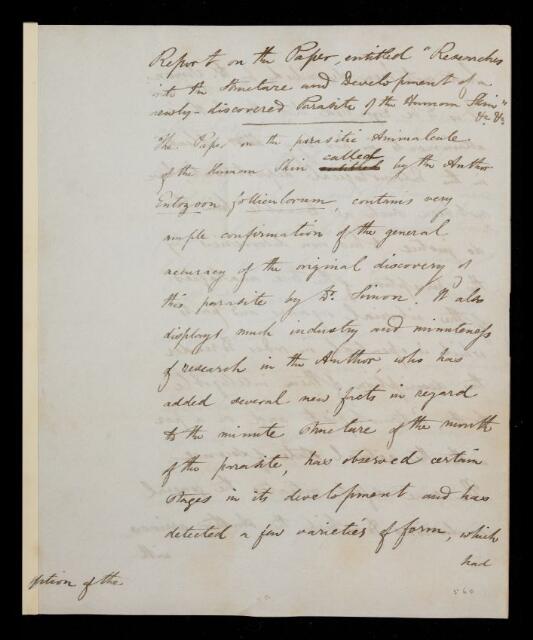 Report on the Paper, entitled "Researches
into the Structure and Development of a
newly-discovered Parasite of the Human Skin"
&c &c
The Paper on the parasitic Animalcule
called
of the Human Skin entitled by the Author
Entozoon folliculorum, contains very
ample confirmation of the general
accuracy of the original discovery of
this parasite by Dr. Simon. It also
displays much industry and minuteness
of research in the Author, who has
added several new facts in regard
to the minute structure of the mouth
of the parasite, has observed certain
stages in its development and has
detected a few varieties of form, which
had
ption of the
560